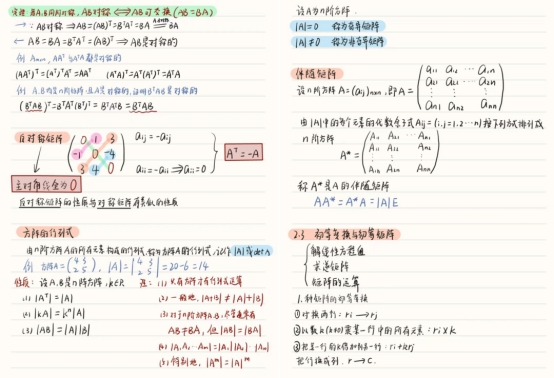 定理 若A,B同阶对称, AB对称 ⟺ AB可交换 (AB=BA)
→ : AB对称 ⇒ AB=(AB)ᵀ=BᵀAᵀ=BA
← AB=BA=BᵀAᵀ=(AB)ᵀ ⇒ AB是对称的
例 Aₘₓₙ, AAᵀ与AᵀA都是对称的
(AAᵀ)ᵀ=(Aᵀ)ᵀAᵀ=AAᵀ (AᵀA)ᵀ=Aᵀ(Aᵀ)ᵀ=AᵀA
例 A,B为n阶矩阵,且A是对称的,证明BᵀAB是对称的
(BᵀAB)ᵀ=BᵀAᵀ(Bᵀ)ᵀ=BᵀAᵀB=BᵀAB
反对称矩阵
0 1 3
-1 0 -4
3 4 0
aij=-aji
aii=-aii ⇒ aii=0
Aᵀ=-A
主对角线全为0
反对称矩阵的性质与对称矩阵有类似的性质
方阵的行列式
由n阶方阵A的所有元素构成的行列式,称为方阵A的行列式,记作|A|或detA
例 方阵A=(4 3
2 5), |A|=|4 3
2 5|=20-6=14
性质: 设A,B是n阶方阵, k∈R
(1) |Aᵀ|=|A|
(2) |kA|=kⁿ|A|
(3) |AB|=|A||B|
注: (1) 只有方阵才有行列式运算
(2) 一般地, |A+B|≠|A|+|B|
(3) 对于n阶方阵A,B,尽管通常有
AB≠BA, 但|AB|=|BA|
(4) |A₁A₂…Aₘ|=|A₁||A₂|…|Aₘ|
(5) 特别地, |Aᵐ|=|A|ᵐ
设A为n阶方阵.
|A|=0 称为奇异矩阵
|A|≠0 称为非奇异矩阵
伴随矩阵
设n阶方阵A=(aij)ₙₓₙ, 即A=
a₁₁ a₁₂ … a₁ₙ
a₂₁ a₂₂ … a₂ₙ
aₙ₁ aₙ₂ … aₙₙ
由|A|中的每个元素的代数余子式Aij=(i,j=1,2…n)按下列方式排列成
n阶方阵
A*=
A₁₁ A₂₁ … Aₙ₁
A₁₂ A₂₂ … Aₙ₂
A₁ₙ A₂ₙ … Aₙₙ
称A*是A的伴随矩阵
AA*=A*A=|A|E
2.3 初等变换与初等矩阵
解线性方程组
求逆矩阵
矩阵的运算
1. 矩阵的初等变换
①对换两行: ri → rj
②以数k(k≠0)乘某一行中的所有元素: ri×k
③把某一行的k倍加到另一行: ri+krj
把行换成列. r → C.